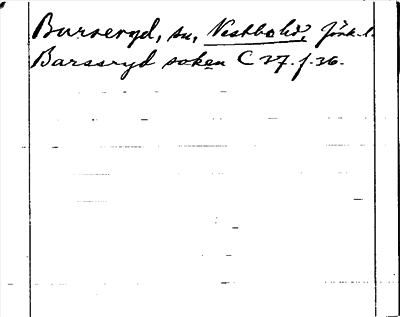 Burseryd, sn, Västbo hd, Jönk. l.
Barssryd soken C 27. f. 36.